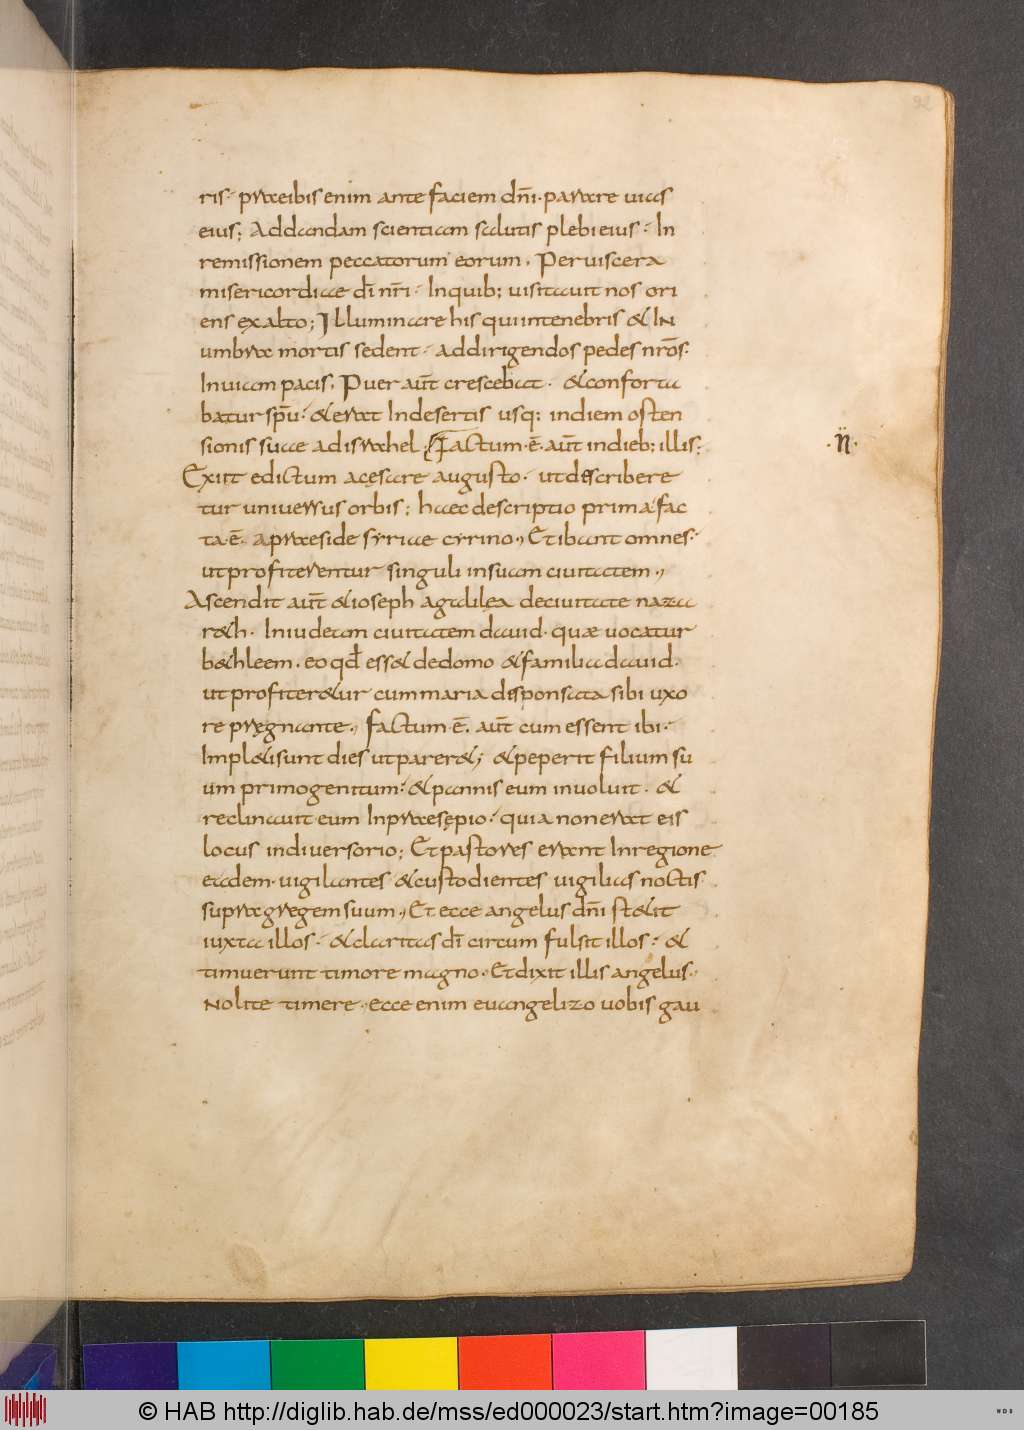 92
ris· praeibis enim ante faciem dn̄i· parare uias
eius; Addandam scientiam salutis plebi eius· In
remissionem peccatorum eorum, Per uiscera
misericordiae dī nr̄i· Inquib; uisitauit nos ori
ens exalto; Illuminare his qui intenebris & IN
umbrae mortis sedent· addirigendos pedes nrōs·
Inuiam pacis, Puer aūt crescebat· &conforta
batur sp̄u· &erat Indesertis usq; indiem osten
sionis suae adisrahel; Factum·ē· aūt indieb; illis;
·n̈·
Exiit edictum acęsare augusto· ut discribere
tur uniuersus orbis; haec descriptio prima fac
ta·ē· apraeside syriae cyrino, Et ibant omnes·
ut profiterentur singuli insuam ciuitatem,
Ascendit aūt &ioseph agalilęa deciuitate naza
r&h· In iudeam ciuitatem dauid· quæ uocatur
b&hleem· eo qđ ess& dedomo &familia dauid·
ut profiter&ur cum maria disponsata sibi uxo
re pręgnante, factum·ē· aūt cum essent ibi·
Impl&i sunt dies ut parer&; &peperit filium su
um primogenitum· &pannis eum inuoluit· &
reclinauit eum Inpraesępio· quia non erat eis
locus indiuersorio; Et pastores erant In regione
eadem· uigilantes &custodientes uigilias noctis·
supra gregem suum, Et ecce angelus dn̄i st&it
iuxta illos· &claritas dī circum fulsit illos· &
timuerunt timore magno· Et dixit illis angelus·
Nolite timere· ecce enim euangelizo uobis gau
© HAB http://diglib.hab.de/mss/ed000023/start.htm?image=00185